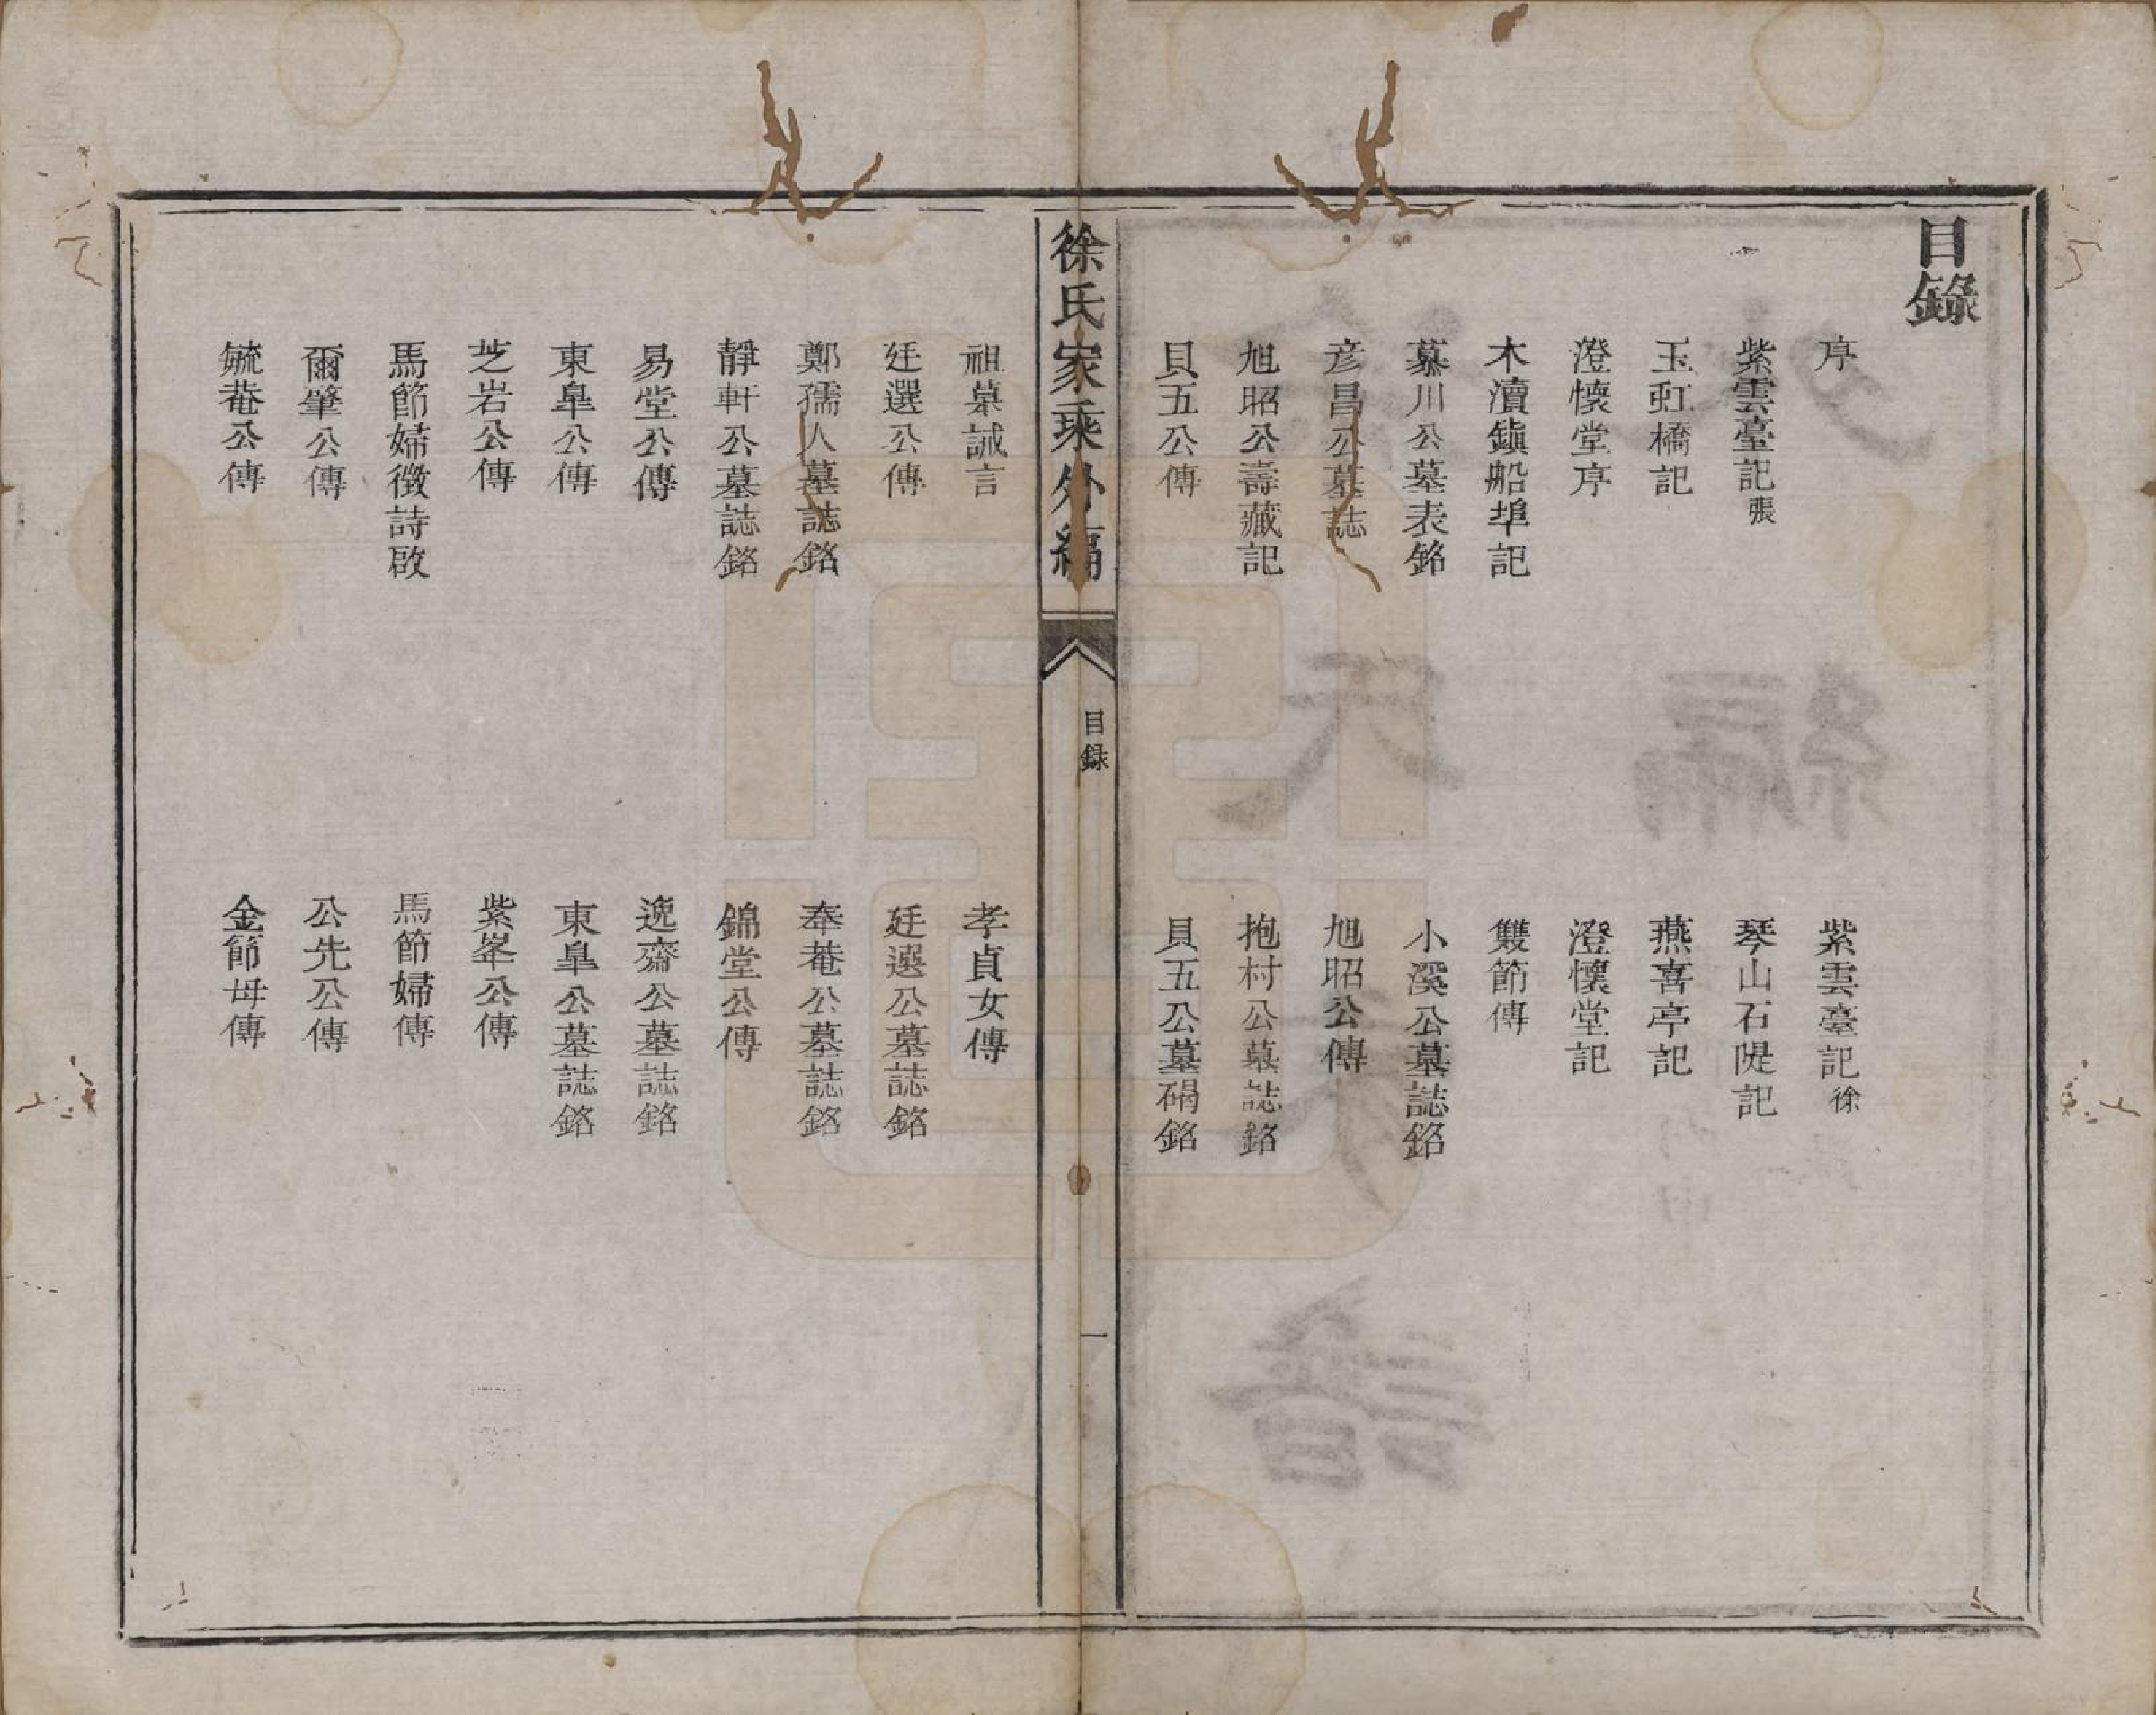 目錄
序
紫雲臺記徐
紫雲臺記張
琴山石隄記
玉虹橋記
燕喜亭記
澄懷堂序
澄懷堂記
木瀆鎮船埠記
雙節傳
慕川公墓表銘
小溪公墓誌銘
彦昌公墓誌
旭昭公傳
旭昭公壽藏記
抱村公墓誌銘
貝五公傳
貝五公墓碣銘
徐氏家乘外編
目錄
一
祖墓誡言
孝貞女傳
廷選公傳
廷選公墓誌銘
鄭孺人墓誌銘
奉菴公墓誌銘
靜軒公墓誌銘
錦堂公傳
易堂公傳
逸齋公墓誌銘
東臯公傳
東臯公墓誌銘
芝岩公傳
紫峯公傳
馬節婦徵詩啟
馬節婦傳
爾肇公傳
公先公傳
毓菴公傳
金節母傳